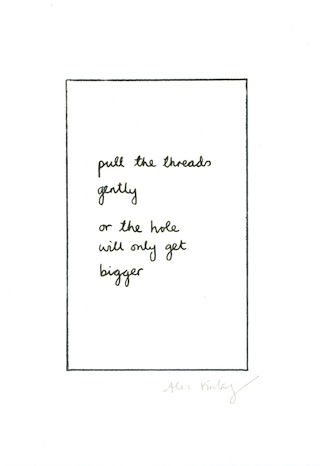 pull the threads
gently
or the hole
will only get
bigger
Alec Finlay